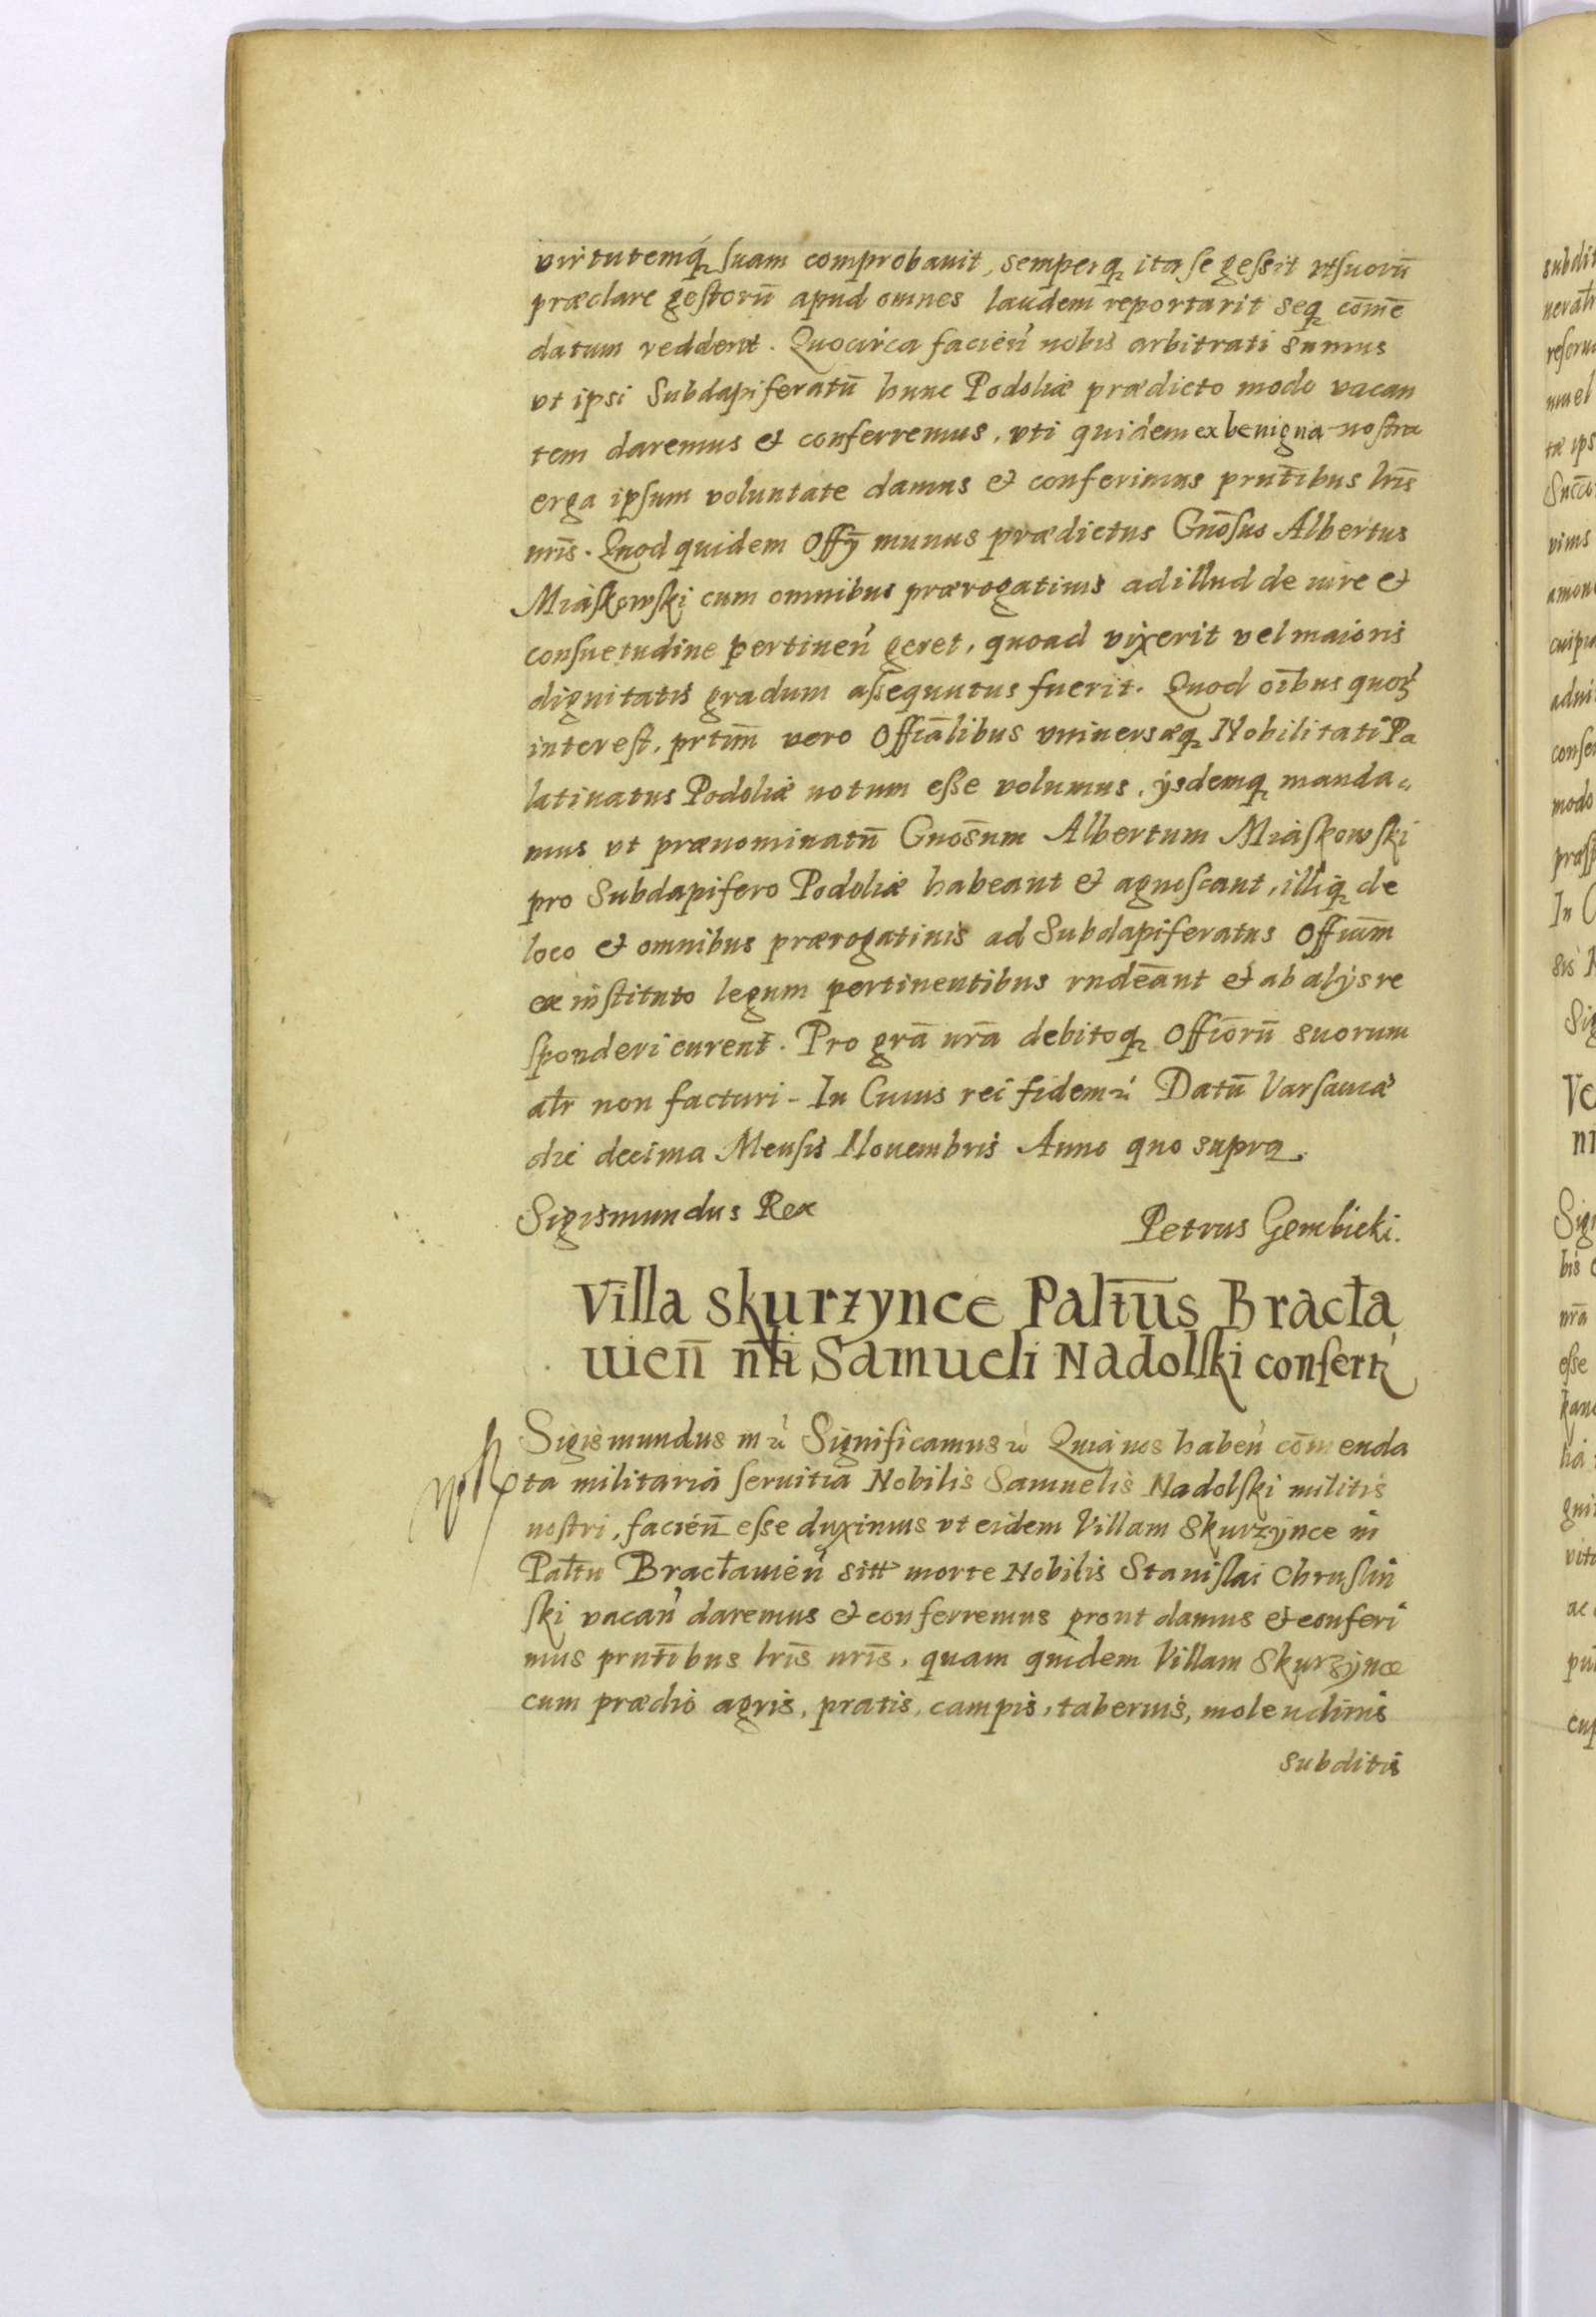 virtutemq́ꝫ suam comprobauit, semperqꝫ ita se gessit vt suorū
præclare gestorū apud omnes laudem reportarit seqꝫ com̄ē
datum redderet. Quocirca facień nobis arbitrati sumus
vt ipsi Subdapiferatū hunc Podoliæ prædicto modo vacan
tem daremus et conferremus, vti quidem ex benigna nostra
erga ipsum voluntate damus et conferimus prn̄tibus lr̄is
nr̄is. Quod quidem Offỹ munus prædictus Gnōsus Albertus
Miaskowski cum omnibus prærogatiuis ad illud de iure et
consuetudine pertineń geret, quoad vixerit vel maioris
dignitatis gradum assequutus fuerit. Quod oībus quoꝝ
interest, prtīm vero Offiālibus vniuersæqꝫ Nobilitati Pa
latinatus Podoliæ notum esse volumus, ijsdemqꝫ manda⸗
mus vt prænominatū Gnōsum Albertum Miaskowski
pro Subdapifero Podoliæ habeant et agnoscant, illiqꝫ de
loco et omnibus prærogatiuis ad Subdapiferatus Offium̄
ex instituto legum pertinentibus rndēant et ab alijs re
sponderi curent. Pro grā nrā debitoqꝫ Offiōrū suorum
altr non facturi - In Cuius rei fidem ꝛć Datū Varsauiæ
die decima Mensis Nouembris Anno quo supra.
Sigismundus Rex
Petrus Gembicki.
Villa Skurzynce Paltūs Bracła
uień nłi Samueli Nadolski confertꝛ
Sigismundus m ꝛć Significamus ꝛć Quia nos habeń cōmenda
ta militaria seruitia Nobilis Samuelis Nadolski militis
nostri, facień esse duximus vt eidem Villam Skurzynce in
Pałtu Bracławień sitt morte Nobilis Stanislai Chruslin
ski vacań daremus et conferremus prout damus et conferi
mus prn̄tibus lr̄is nr̄is, quam quidem Villam Skurzynce
cum prædio agris, pratis, campis, tabernis, molendinis
subditis